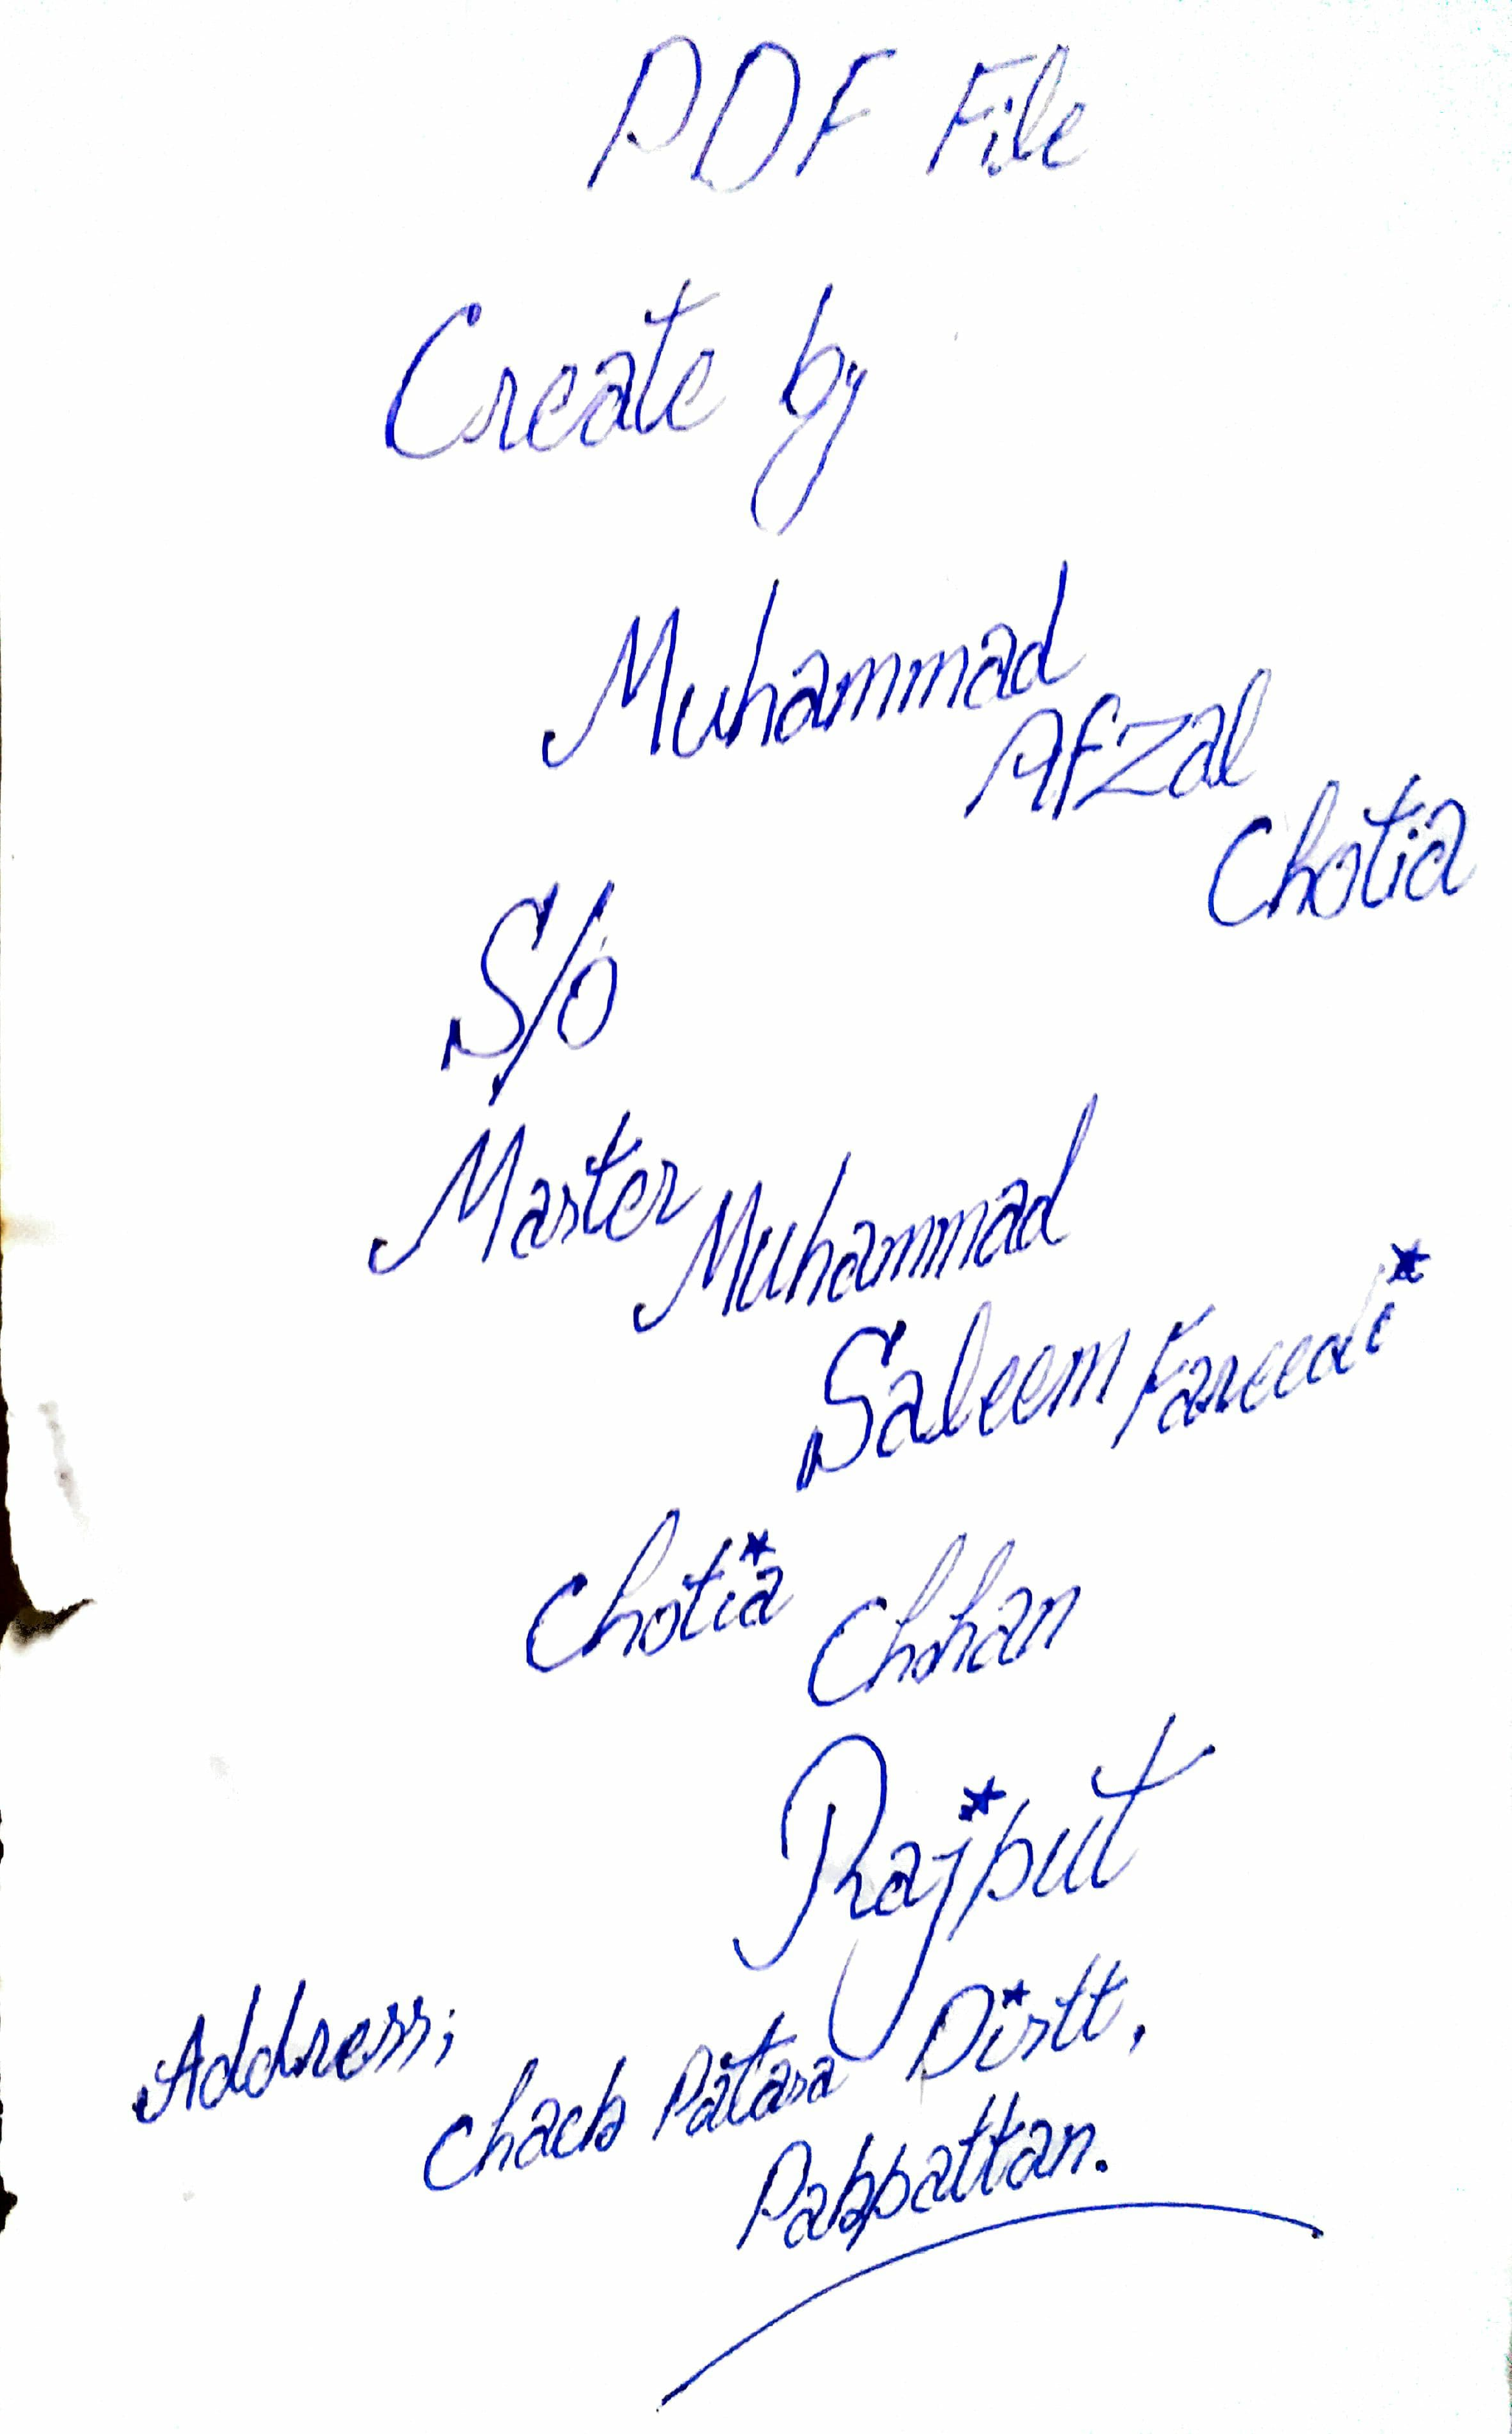 PDF File
Create by
Muhammad
Afzal
Chotia
S/o
Master Muhammad
Saleem Fareedi
Chotia Chohan
Rajput
Address;
Chack Patara Distt.
Pakpattan.